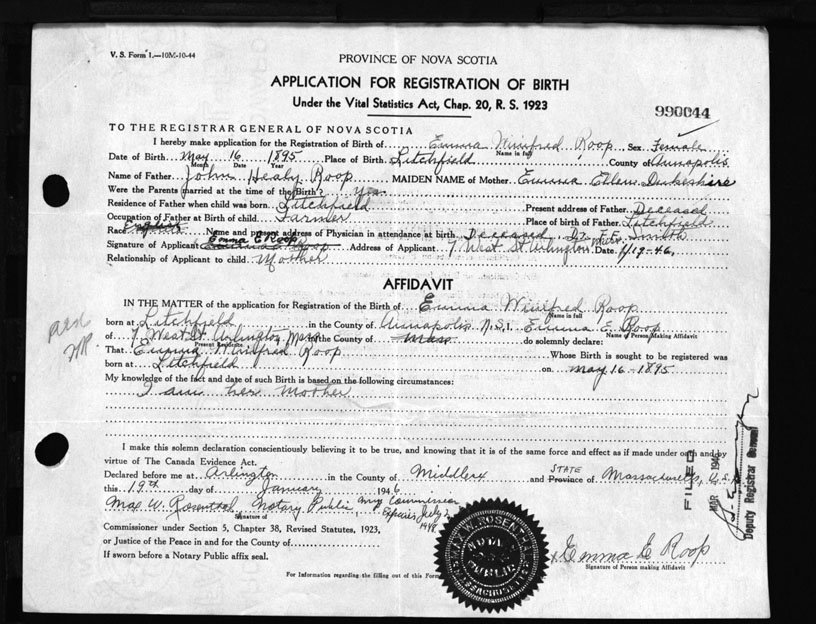 V. S. Form 1.—10M-10-44
PROVINCE OF NOVA SCOTIA
APPLICATION FOR REGISTRATION OF BIRTH
Under the Vital Statistics Act, Chap. 20, R. S. 1923
990044
TO THE REGISTRAR GENERAL OF NOVA SCOTIA
I hereby make application for the Registration of Birth of Emma Winifred Roop Sex Female
Name in full
Date of Birth May 16 1895 Place of Birth Litchfield County of Annapolis
Month Date Year
Name of Father John Healy Roop MAIDEN NAME of Mother Emma Ellen Dukeshire
Were the Parents married at the time of the Birth? Yes
Residence of Father when child was born Litchfield Present address of Father Deceased
Occupation of Father at Birth of child Farmer Place of birth of Father Litchfield
Race English Name and present address of Physician in attendance at birth Deceased Dr. Smith
Signature of Applicant Emma E Roop Address of Applicant 7 West St Arlington Date 1/19-46
Relationship of Applicant to child Mother
AFFIDAVIT
IN THE MATTER of the application for Registration of the Birth of Emma Winifred Roop
Name in full
born at Litchfield in the County of Annapolis N.S. I, Emma E. Roop
Name of Person Making Affidavit
of 7 West St Arlington Mass in the County of Mass do solemnly declare:
Present Residence
That Emma Winifred Roop Whose Birth is sought to be registered was
born at Litchfield on May 16-1895
My knowledge of the fact and date of such Birth is based on the following circumstances:
I am her Mother
I make this solemn declaration conscientiously believing it to be true, and knowing that it is of the same force and effect as if made under oath and by
virtue of The Canada Evidence Act.
Declared before me at Arlington in the County of Middlesex and STATE Province of Massachusetts, U.S.A.
this 19th day of January 1946
Max W. Rosenthal Notary Public My Commission
Expires July 2 1948
Signature of
Commissioner under Section 5, Chapter 38, Revised Statutes, 1923,
or Justice of the Peace in and for the County of
If sworn before a Notary Public affix seal.
Emma E Roop
Signature of Person making Affidavit
For Information regarding the filling out of this Form
MAX W. ROSENTHAL
NOTARY PUBLIC
MASSACHUSETTS
FILED
MAR 1946
Deputy Registrar General